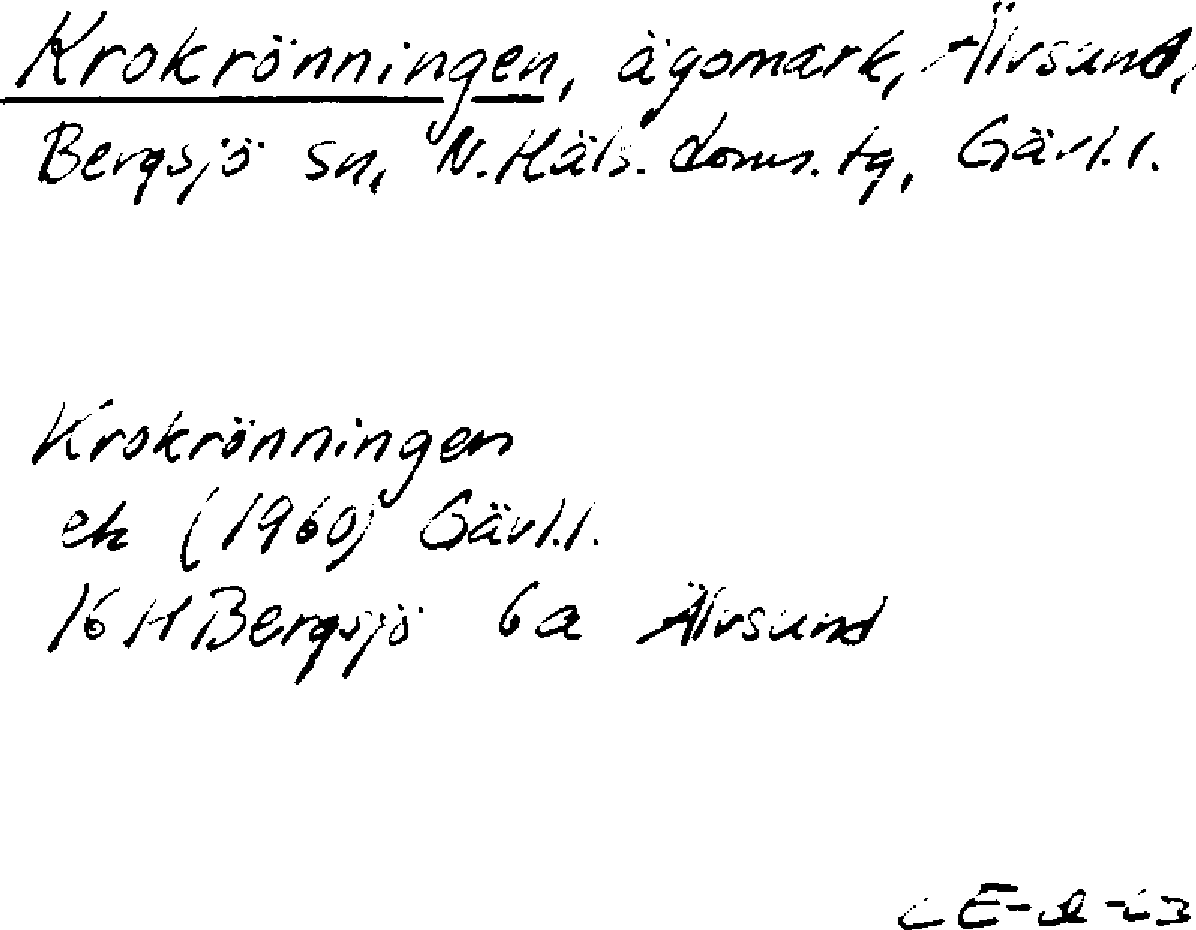 Krokrönningen, ägomark, Älvsund,
Bergsjö sn, N. Häls. doms. tg, Gävl. l.
Krokrönningen
ek (1960) Gävl. l.
16 H Bergsjö 6a Älvsund